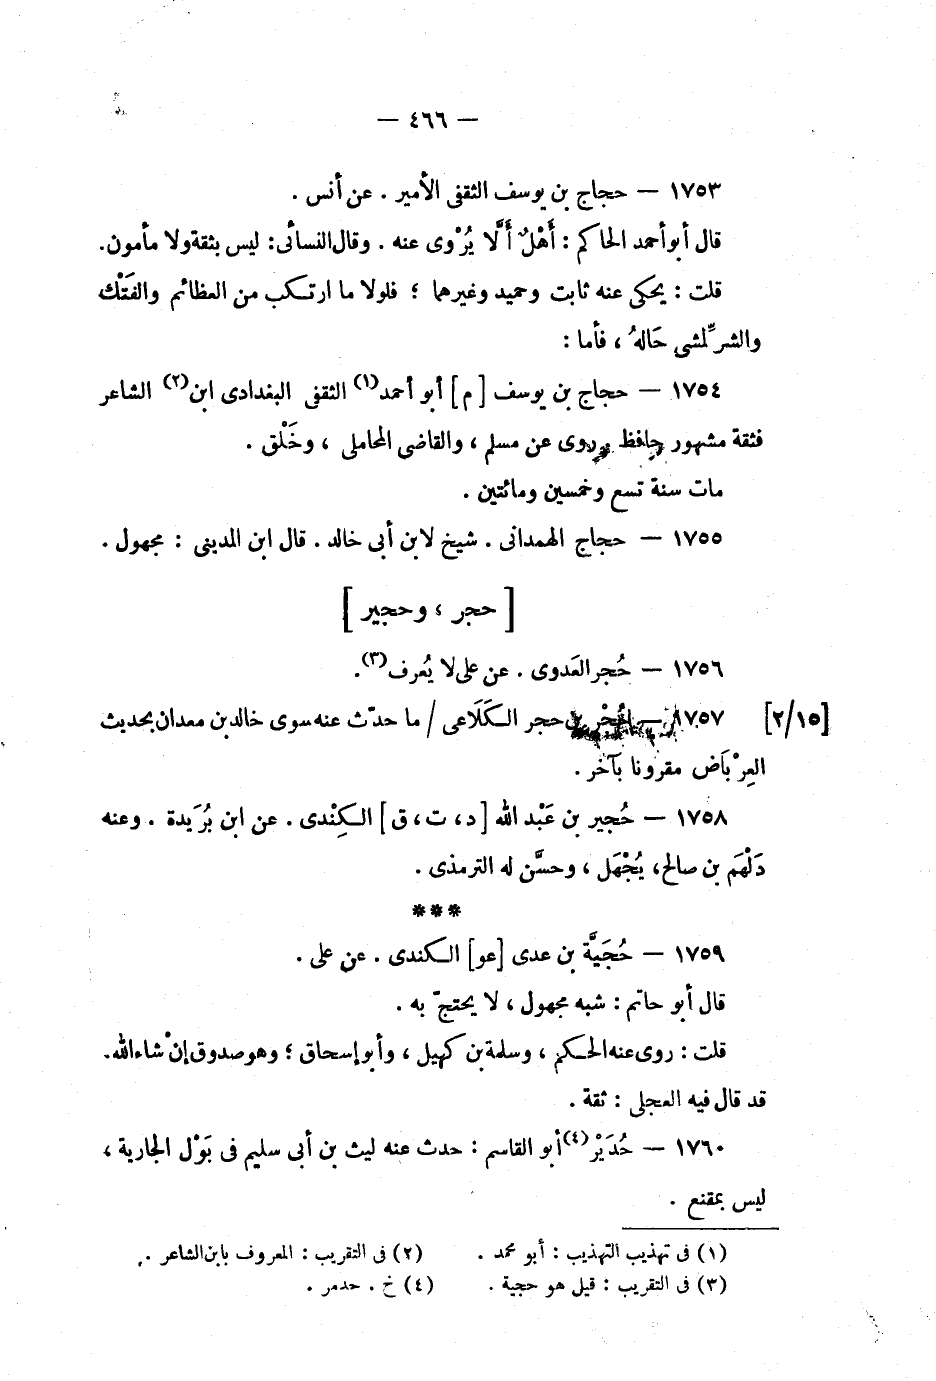 — ٤٦٦ —
١٧٥٣ — حجاج بن يوسف الثقفى الأمير . عن أنس .
قال أبو أحمد الحاكم : أَهْلٌ أَلَّا يُرْوى عنه . وقال النسائى: ليس بثقة ولا مأمون.
قلت : يحكى عنه ثابت وحميد وغيرهما ؛ فلولا ما ارتكب من العظائم والفَتْك
والشرّ لمشى حَالهُ ، فأما :
١٧٥٤ — حجاج بن يوسف [ م ] أبو أحمد(١) الثقفى البغدادى ابن(٢) الشاعر
فثقة مشهور حافظ روى عن مسلم ، والقاضى المحاملى ، وخَلْق .
مات سنة تسع وخمسين ومائتين .
١٧٥٥ — حجاج الهمدانى . شيخ لابن أبى خالد . قال ابن المدينى : مجهول .
[ حجر ، وحجير ]
١٧٥٦ — حُجر العَدوى . عن على لا يُعرف(٣).
[٢/١٥] ١٧٥٧ — حُجْر بن حجر الكَلَاعى / ما حدّث عنه سوى خالد بن معدان بحديث
العِرْبَاض مقرونا بآخر .
١٧٥٨ — حُجير بن عَبْد الله [ د، ت، ق ] الكِنْدى . عن ابن بُرَيدة . وعنه
دَلْهَم بن صالح، يُجْهَل ، وحسَّن له الترمذى .
***
١٧٥٩ — حُجَيَّة بن عدى [عو] الكندى . عن على .
قال أبو حاتم : شبه مجهول ، لا يحتجّ به .
قلت : روى عنه الحكم ، وسلمة بن كهيل ، وأبو إسحاق ؛ وهو صدوق إنْ شاء الله.
قد قال فيه العجلى : ثقة .
١٧٦٠ — حُدَيْر(٤) أبو القاسم : حدث عنه ليث بن أبى سليم فى بَوْل الجارية ،
ليس بمقنع .
(١) فى تهذيب التهذيب : أبو محمد . (٢) فى التقريب : المعروف بابن الشاعر .
(٣) فى التقريب : قيل هو حجية . (٤) خ . حدمر .